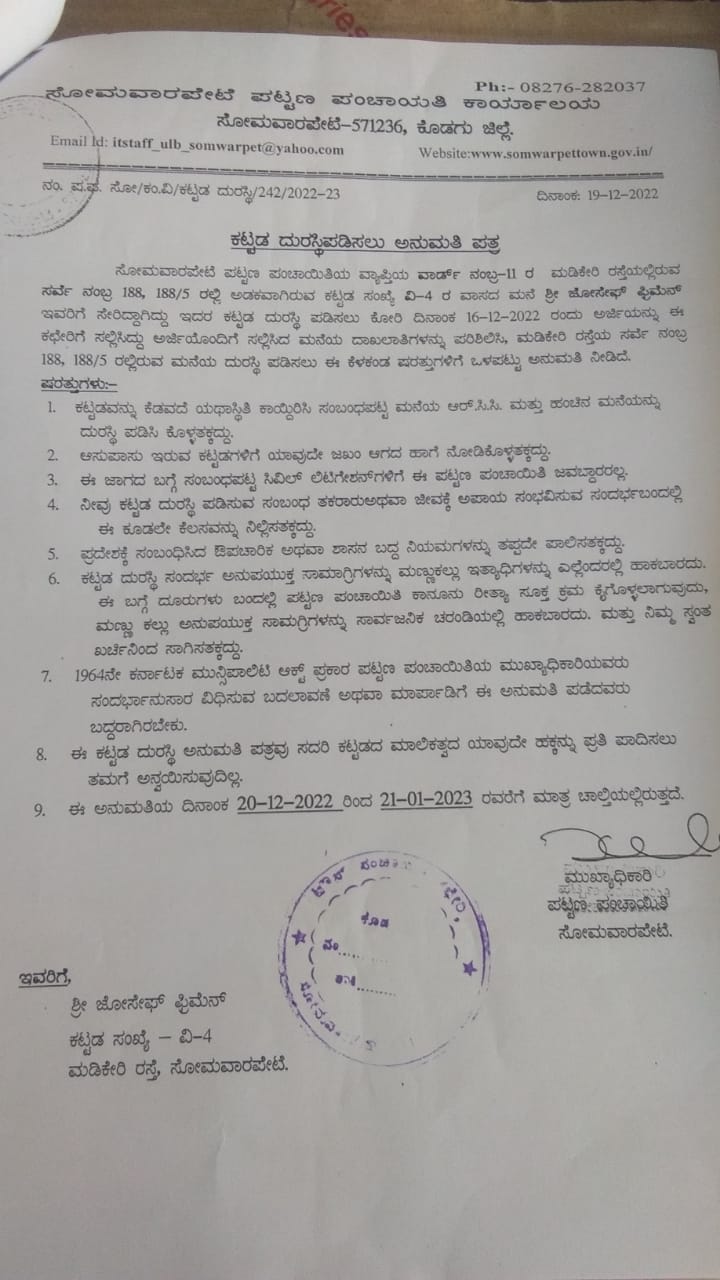 ries
Ph:- 08276-282037
ಸೋಮವಾರಪೇಟೆ ಪಟ್ಟಣ ಪಂಚಾಯತಿ ಕಾರ್ಯಾಲಯ
ಸೋಮವಾರಪೇಟೆ-571236, ಕೊಡಗು ಜಿಲ್ಲೆ.
Email Id: itstaff_ulb_somwarpet@yahoo.com Website:www.somwarpettown.gov.in/
ನಂ. ಪ.ಪ. ಸೋ/ಕಂ.ವಿ/ಕಟ್ಟಡ ದುರಸ್ಥಿ/242/2022-23 ದಿನಾಂಕ: 19-12-2022
ಕಟ್ಟಡ ದುರಸ್ಥಿಪಡಿಸಲು ಅನುಮತಿ ಪತ್ರ
ಸೋಮವಾರಪೇಟೆ ಪಟ್ಟಣ ಪಂಚಾಯಿತಿಯ ವ್ಯಾಪ್ತಿಯ ವಾರ್ಡ್ ನಂಬ್ರ-11 ರ ಮಡಿಕೇರಿ ರಸ್ತೆಯಲ್ಲಿರುವ
ಸರ್ವೆ ನಂಬ್ರ 188, 188/5 ರಲ್ಲಿ ಅಡಕವಾಗಿರುವ ಕಟ್ಟಡ ಸಂಖ್ಯೆ ವಿ-4 ರ ವಾಸದ ಮನೆ ಶ್ರೀ ಜೋಸೇಫ್ ಫ್ರಿಮೆನ್
ಇವರಿಗೆ ಸೇರಿದ್ದಾಗಿದ್ದು ಇದರ ಕಟ್ಟಡ ದುರಸ್ಥಿ ಪಡಿಸಲು ಕೋರಿ ದಿನಾಂಕ 16-12-2022 ರಂದು ಅರ್ಜಿಯನ್ನು ಈ
ಕಛೇರಿಗೆ ಸಲ್ಲಿಸಿದ್ದು ಅರ್ಜಿಯೊಂದಿಗೆ ಸಲ್ಲಿಸಿದ ಮನೆಯ ದಾಖಲಾತಿಗಳನ್ನು ಪರಿಶಿಲಿಸಿ, ಮಡಿಕೇರಿ ರಸ್ತೆಯ ಸರ್ವೆ ನಂಬ್ರ
188, 188/5 ರಲ್ಲಿರುವ ಮನೆಯ ದುರಸ್ಥಿ ಪಡಿಸಲು ಈ ಕೆಳಕಂಡ ಷರತ್ತುಗಳಿಗೆ ಒಳಪಟ್ಟು ಅನುಮತಿ ನೀಡಿದೆ.
ಷರತ್ತುಗಳು:-
1. ಕಟ್ಟಡವನ್ನು ಕೆಡವದೆ ಯಥಾಸ್ಥಿತಿ ಕಾಯ್ದಿರಿಸಿ ಸಂಬಂಧಪಟ್ಟ ಮನೆಯ ಆರ್.ಸಿ.ಸಿ. ಮತ್ತು ಹಂಚಿನ ಮನೆಯನ್ನು
ದುರಸ್ಥಿ ಪಡಿಸಿ ಕೊಳ್ಳತಕ್ಕದ್ದು.
2. ಆಸುಪಾಸು ಇರುವ ಕಟ್ಟಡಗಳಿಗೆ ಯಾವುದೇ ಜಖಂ ಆಗದ ಹಾಗೆ ನೋಡಿಕೊಳ್ಳತಕ್ಕದ್ದು.
3. ಈ ಜಾಗದ ಬಗ್ಗೆ ಸಂಬಂಧಪಟ್ಟ ಸಿವಿಲ್ ಲಿಟಿಗೇಶನ್‌ಗಳಿಗೆ ಈ ಪಟ್ಟಣ ಪಂಚಾಯಿತಿ ಜವಬ್ದಾರರಲ್ಲ.
4. ನೀವು ಕಟ್ಟಡ ದುರಸ್ಥಿ ಪಡಿಸುವ ಸಂಬಂಧ ತಕರಾರುಅಥವಾ ಜೀವಕ್ಕೆ ಅಪಾಯ ಸಂಭವಿಸುವ ಸಂದರ್ಭಬಂದಲ್ಲಿ
ಈ ಕೂಡಲೇ ಕೆಲಸವನ್ನು ನಿಲ್ಲಿಸತಕ್ಕದ್ದು.
5. ಪ್ರದೇಶಕ್ಕೆ ಸಂಬಂಧಿಸಿದ ಔಪಚಾರಿಕ ಅಥವಾ ಶಾಸನ ಬದ್ದ ನಿಯಮಗಳನ್ನು ತಪ್ಪದೇ ಪಾಲಿಸತಕ್ಕದ್ದು.
6. ಕಟ್ಟಡ ದುರಸ್ಥಿ ಸಂದರ್ಭ ಅನುಪಯುಕ್ತ ಸಾಮಾಗ್ರಿಗಳನ್ನು ಮಣ್ಣುಕಲ್ಲು ಇತ್ಯಾಧಿಗಳನ್ನು ಎಲ್ಲೆಂದರಲ್ಲಿ ಹಾಕಬಾರದು.
ಈ ಬಗ್ಗೆ ದೂರುಗಳು ಬಂದಲ್ಲಿ ಪಟ್ಟಣ ಪಂಚಾಯಿತಿ ಕಾನೂನು ರೀತ್ಯಾ ಸೂಕ್ತ ಕ್ರಮ ಕೈಗೊಳ್ಳಲಾಗುವುದು,
ಮಣ್ಣು ಕಲ್ಲು ಅನುಪಯುಕ್ತ ಸಾಮಗ್ರಿಗಳನ್ನು ಸಾರ್ವಜನಿಕ ಚರಂಡಿಯಲ್ಲಿ ಹಾಕಬಾರದು. ಮತ್ತು ನಿಮ್ಮ ಸ್ವಂತ
ಖರ್ಚಿನಿಂದ ಸಾಗಿಸತಕ್ಕದ್ದು.
7. 1964ನೇ ಕರ್ನಾಟಕ ಮುನ್ಸಿಪಾಲಿಟಿ ಆಕ್ಟ್ ಪ್ರಕಾರ ಪಟ್ಟಣ ಪಂಚಾಯಿತಿಯ ಮುಖ್ಯಾಧಿಕಾರಿಯವರು
ಸಂದರ್ಭಾನುಸಾರ ವಿಧಿಸುವ ಬದಲಾವಣೆ ಅಥವಾ ಮಾರ್ಪಾಡಿಗೆ ಈ ಅನುಮತಿ ಪಡೆದವರು
ಬದ್ದರಾಗಿರಬೇಕು.
8. ಈ ಕಟ್ಟಡ ದುರಸ್ಥಿ ಅನುಮತಿ ಪತ್ರವು ಸದರಿ ಕಟ್ಟಡದ ಮಾಲಿಕತ್ವದ ಯಾವುದೇ ಹಕ್ಕನ್ನು ಪ್ರತಿ ಪಾದಿಸಲು
ತಮಗೆ ಅನ್ವಯಿಸುವುದಿಲ್ಲ.
9. ಈ ಅನುಮತಿಯ ದಿನಾಂಕ 20-12-2022 ರಿಂದ 21-01-2023 ರವರೆಗೆ ಮಾತ್ರ ಚಾಲ್ತಿಯಲ್ಲಿರುತ್ತದೆ.
ಮುಖ್ಯಾಧಿಕಾರಿ
ಪಟ್ಟಣ ಪಂಚಾಯಿತಿ
ಸೋಮವಾರಪೇಟೆ.
ಇವರಿಗೆ,
ಶ್ರೀ ಜೋಸೇಫ್ ಫ್ರಿಮೆನ್
ಕಟ್ಟಡ ಸಂಖ್ಯೆ – ವಿ-4
ಮಡಿಕೇರಿ ರಸ್ತೆ, ಸೋಮವಾರಪೇಟೆ.